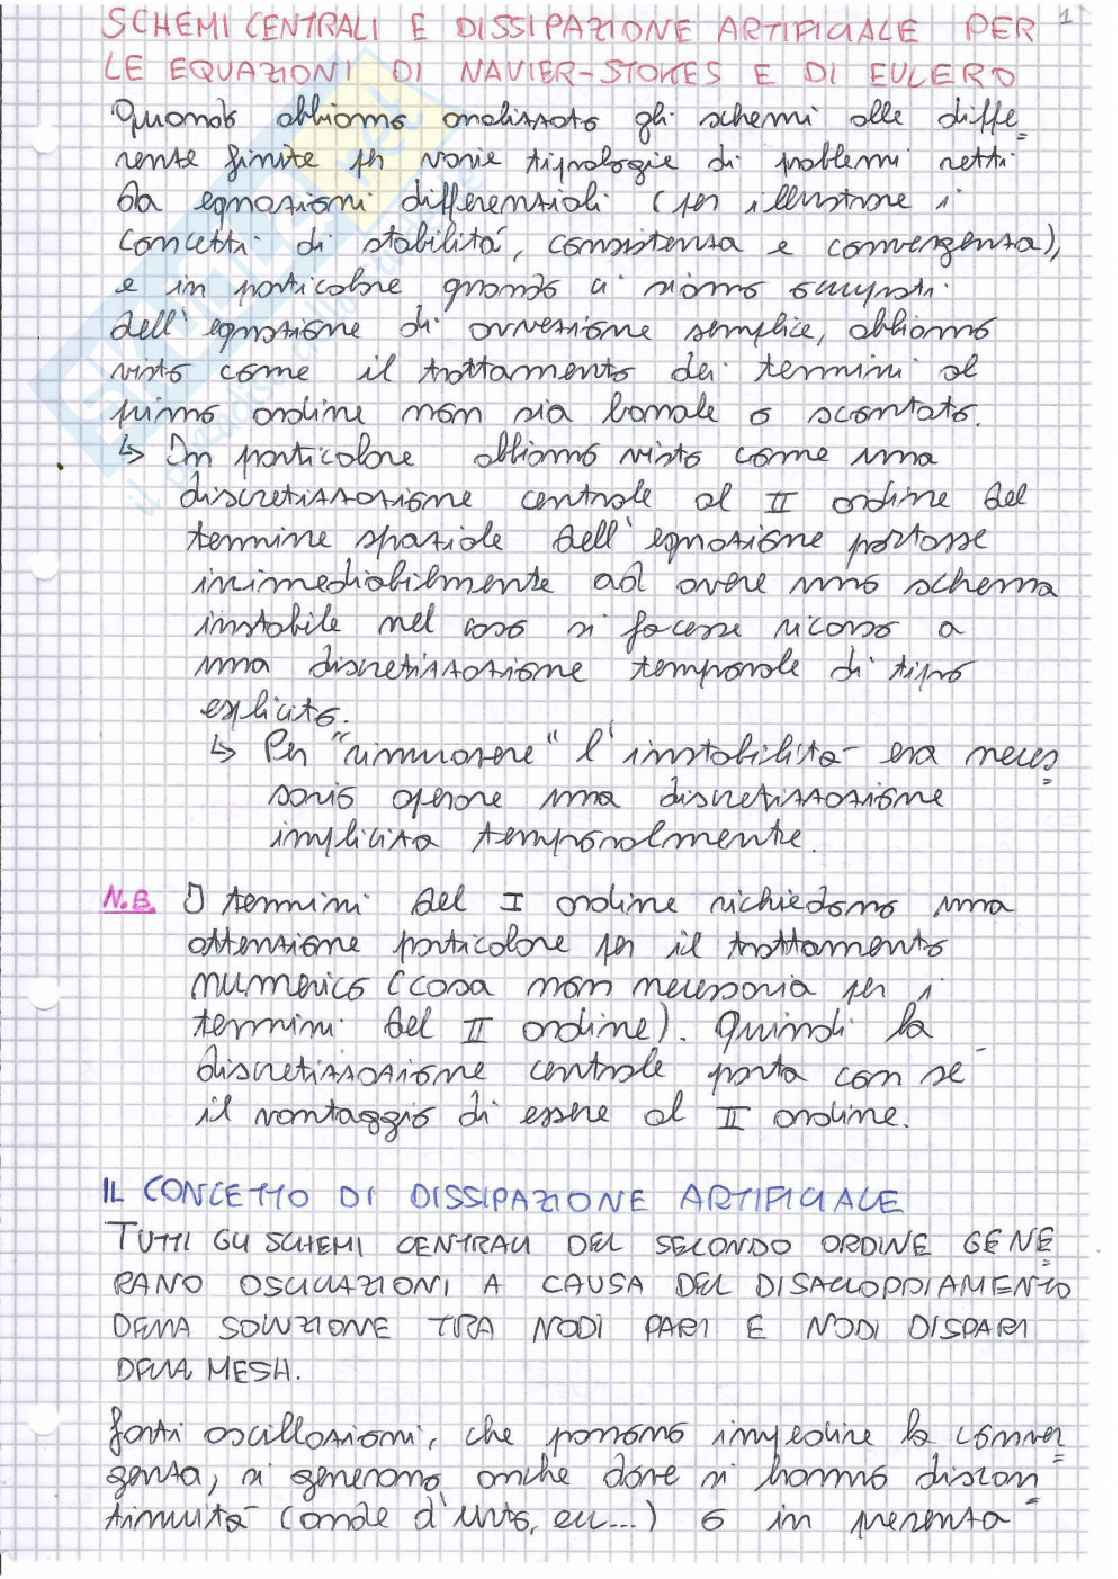 1
SCHEMI CENTRALI E DISSIPAZIONE ARTIFICIALE PER
LE EQUAZIONI DI NAVIER-STOKES E DI EULERO
Quando abbiamo analizzato gli schemi alle diffe=
renze finite per varie tipologie di problemi retti
da equazioni differenziali (per illustrare i
concetti di stabilità, consistenza e convergenza),
e in particolare quando ci siamo occupati
dell'equazione di avvezione semplice, abbiamo
visto come il trattamento dei termini al
primo ordine non sia banale o scontato.
↳ In particolare abbiamo visto come una
discretizzazione centrale al II ordine del
termine spaziale dell'equazione portasse
irrimediabilmente ad avere uno schema
instabile nel caso si facesse ricorso a
una discretizzazione temporale di tipo
esplicito.
↳ Per "rimuovere" l'instabilità era neces=
sario operare una discretizzazione
implicita temporalmente.
N.B. I termini del I ordine richiedono una
attenzione particolare per il trattamento
numerico (cosa non necessaria per i
termini del II ordine). Quindi la
discretizzazione centrale porta con sé
il vantaggio di essere al II ordine.
IL CONCETTO DI DISSIPAZIONE ARTIFICIALE
TUTTI GLI SCHEMI CENTRALI DEL SECONDO ORDINE GENE=
RANO OSCILLAZIONI A CAUSA DEL DISACCOPPIAMENTO
DELLA SOLUZIONE TRA NODI PARI E NODI DISPARI
DELLA MESH.
Forti oscillazioni, che possono impedire la conver=
genza, si generano anche dove si hanno discon=
tinuità (onde d'urto, ecc...) o in presenza